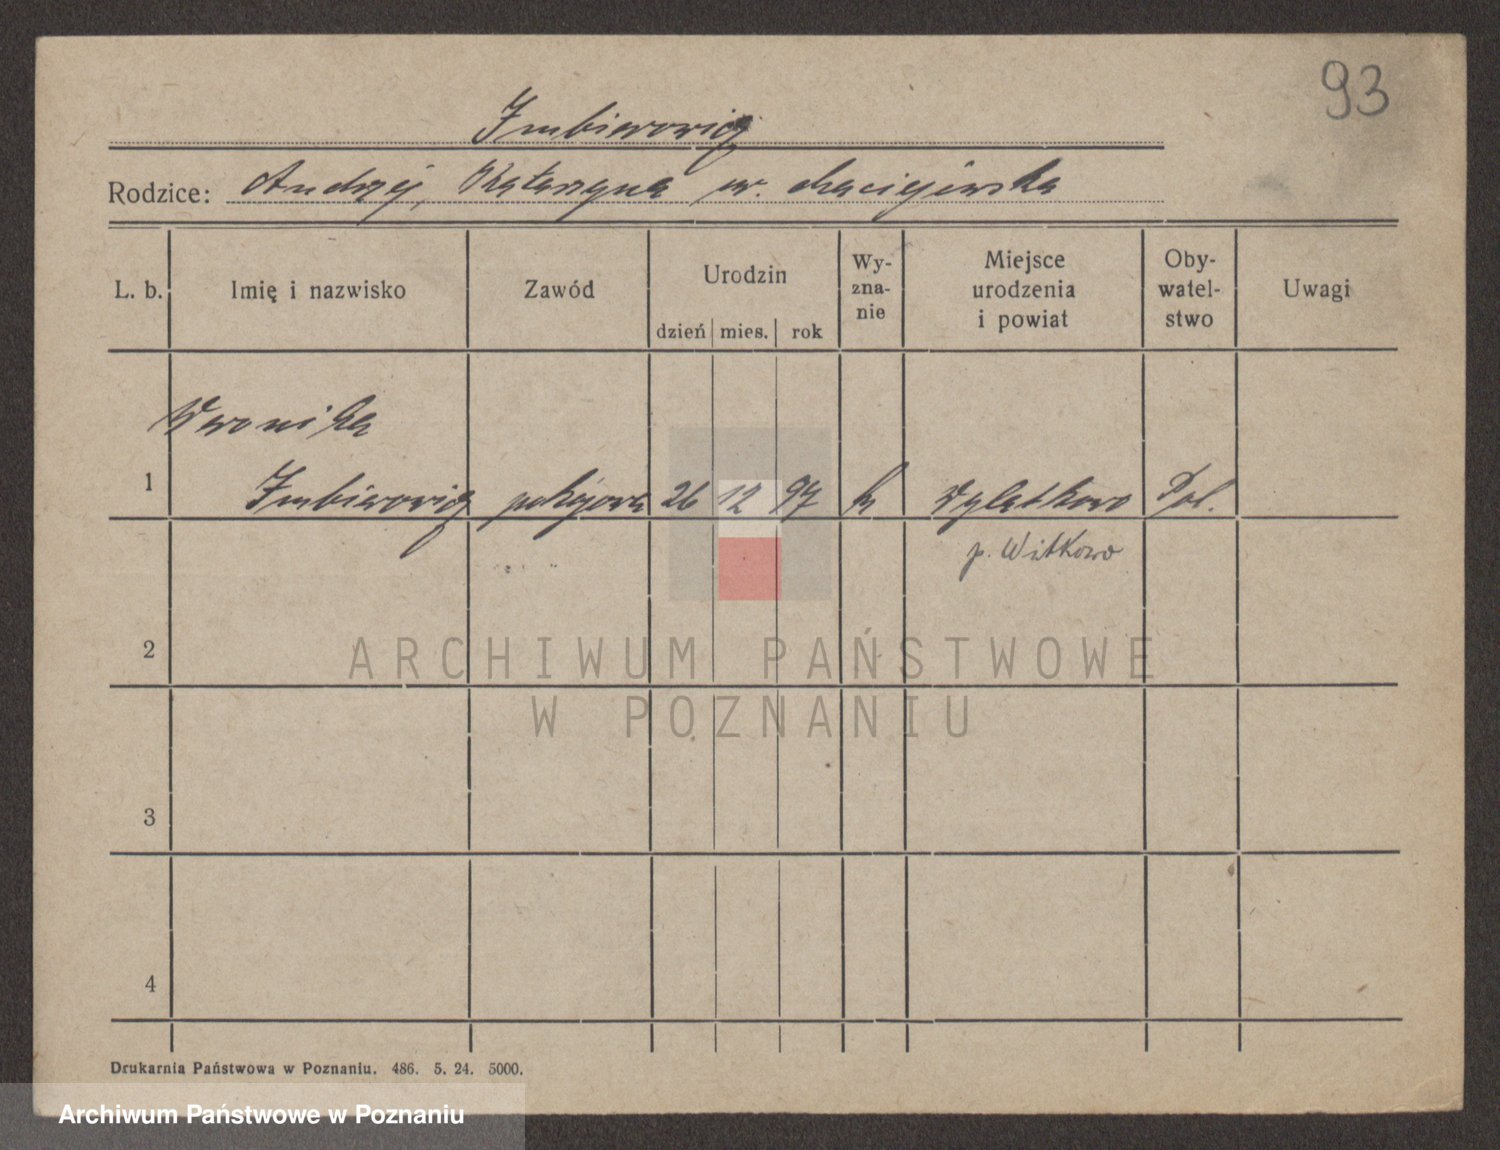 93
Imbierowicz
Rodzice: Andrzej, Katarzyna ur. Maciejewska
L. b. Imię i nazwisko Zawód Urodzin dzień mies. rok Wy-zna-nie Miejsce urodzenia i powiat Oby-watel-stwo Uwagi
Weronika
1 Imbierowicz pokojowa 26 12 97 k Wylatkowo Pol.
p. Witkowo
2
ARCHIWUM PAŃSTWOWE
W POZNANIU
3
4
Drukarnia Państwowa w Poznaniu. 486. 5. 24. 5000.
Archiwum Państwowe w Poznaniu